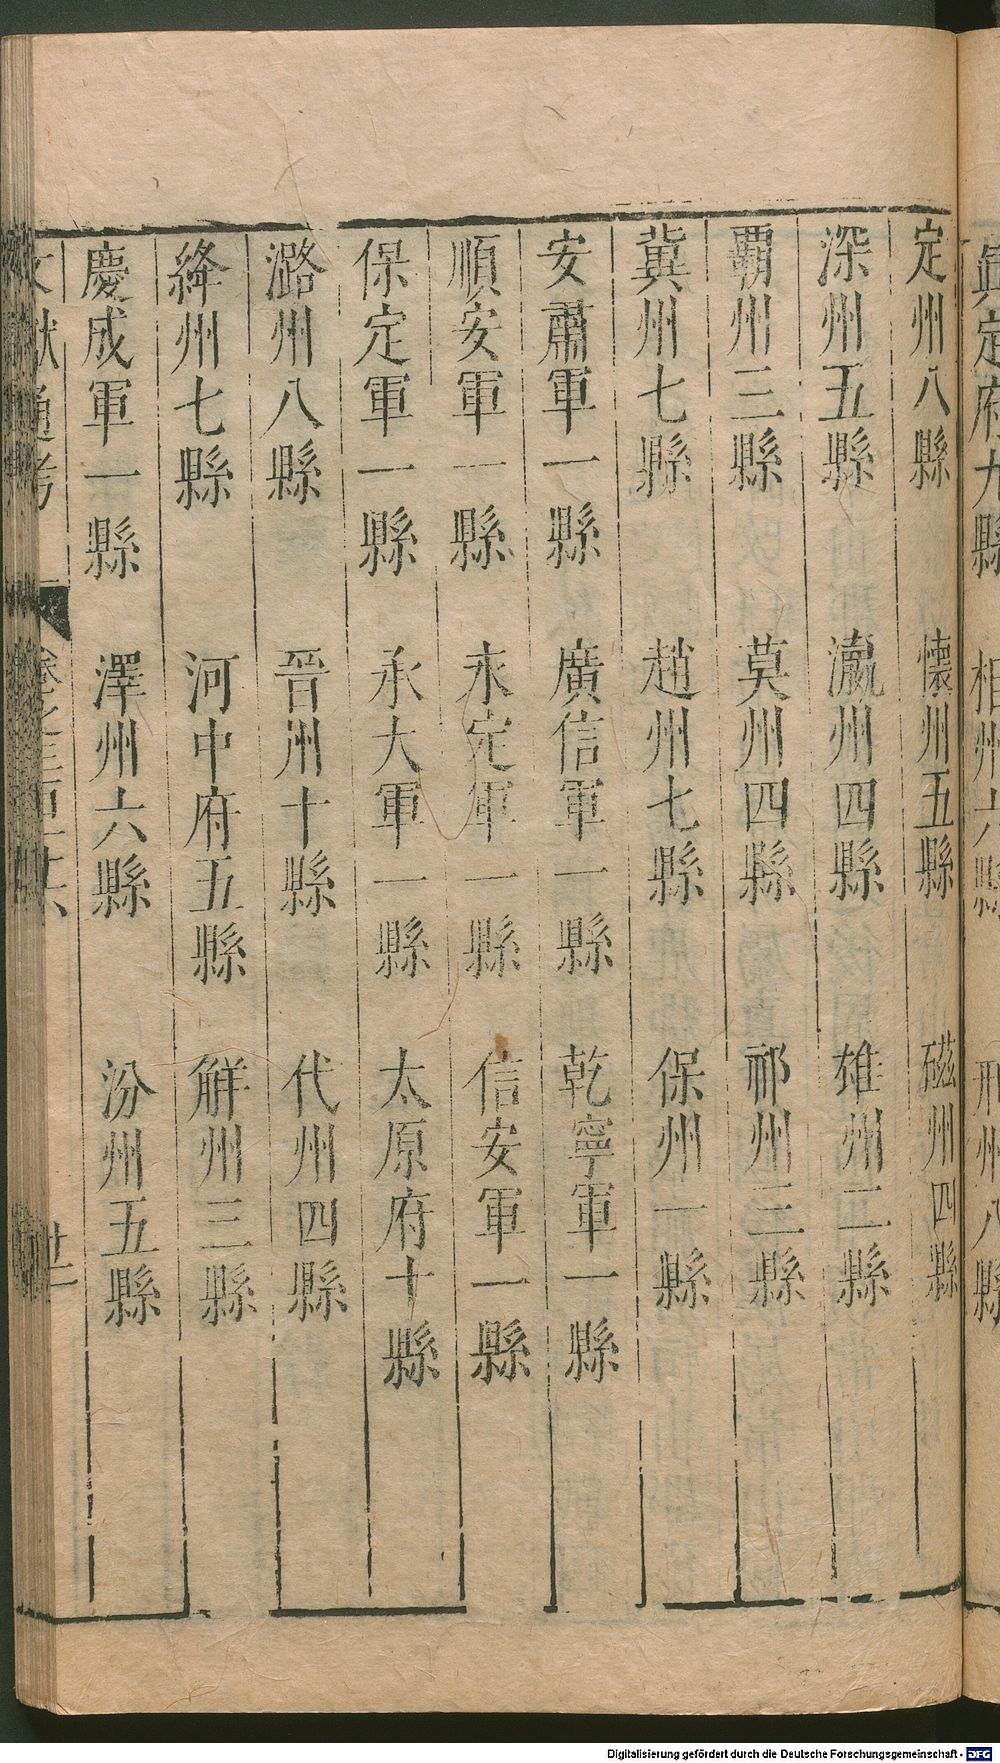 眞定府九縣　相州六縣　邢州八縣
定州八縣　懷州五縣　磁州四縣
深州五縣　瀛州四縣　雄州二縣
霸州三縣　莫州四縣　祁州三縣
冀州七縣　趙州七縣　保州一縣
安肅軍一縣　廣信軍一縣　乾寧軍一縣
順安軍一縣　永定軍一縣　信安軍一縣
保定軍一縣　承天軍一縣　太原府十縣
潞州八縣　晉州十縣　代州四縣
絳州七縣　河中府五縣　解州三縣
慶成軍一縣　澤州六縣　汾州五縣
文獻通考
Digitalisierung gefördert durch die Deutsche Forschungsgemeinschaft - DFG